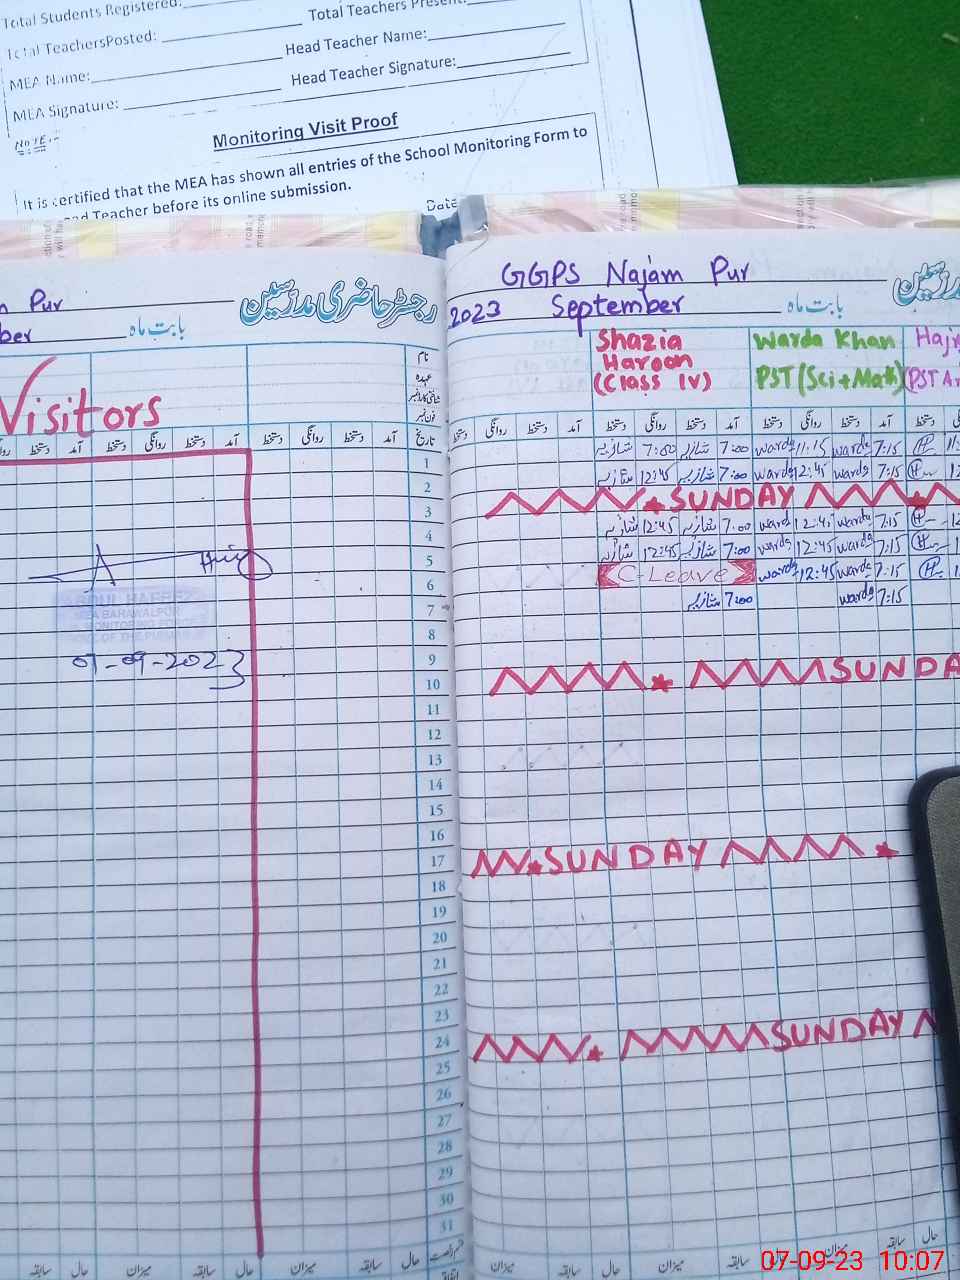 Total Students Registered:
Total Teachers Present:
Total TeachersPosted:
Head Teacher Name:
MEA Name:
Head Teacher Signature:
MEA Signature:
NOTE:-
Monitoring Visit Proof
It is certified that the MEA has shown all entries of the School Monitoring Form to
Teacher before its online submission.
Date
Pur
رجسٹر حاضری مدرسین
بابت ماہ
Visitors
نام
عہدہ
شناختی کارڈ نمبر
فون نمبر
دستخط روانگی دستخط آمد دستخط روانگی دستخط آمد تاریخ
1
2
3
4
5
6
7
8
9
10
11
12
13
14
15
16
17
18
19
20
21
22
23
24
25
26
27
28
29
30
31
ABDUL HAFEEZ
MEA BAHAWALPUR
07-09-2023
سابقہ حال میزان سابقہ حال میزان سابقہ حال
GGPS Najam Pur
2023 September بابت ماہ
Shazia Haroon (Class IV)
Warda Khan PST (Sci+Math)
دستخط روانگی دستخط آمد دستخط روانگی دستخط آمد دستخط روانگی دستخط آمد دستخط
شازیہ 7:00 شازیہ 7:00 warda 11:15 warda 7:15
شازیہ 12:45 شازیہ 7:00 warda 12:45 warda 7:15
SUNDAY
شازیہ 12:45 شازیہ 7:00 warda 12:45 warda 7:15
شازیہ 12:45 شازیہ 7:00 warda 12:45 warda 7:15
C-Leave warda 12:45 warda 7:15
شازیہ 7:00 warda 7:15
SUNDA
SUNDAY
SUNDAY
سابقہ حال میزان سابقہ حال میزان سابقہ حال
07-09-23 10:07